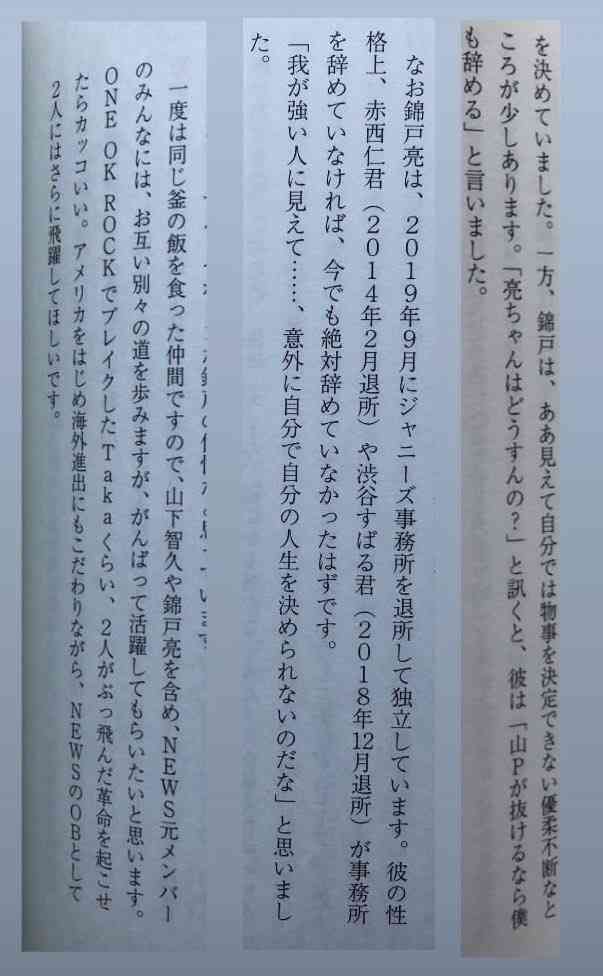 を決めていました。一方、錦戸は、ああ見えて自分では物事を決定できない優柔不断なと
ころが少しあります。「亮ちゃんはどうすんの？」と訊くと、彼は「山Pが抜けるなら僕
も辞める」と言いました。
なお錦戸亮は、２０１９年９月にジャニーズ事務所を退所して独立しています。彼の性
格上、赤西仁君（２０１４年２月退所）や渋谷すばる君（２０１８年12月退所）が事務所
を辞めていなければ、今でも絶対辞めていなかったはずです。
「我が強い人に見えて……、意外に自分で自分の人生を決められないのだな」と思いまし
た。
一度は同じ釜の飯を食った仲間ですので、山下智久や錦戸亮を含め、NEWS元メンバー
のみんなには、お互い別々の道を歩みますが、がんばって活躍してもらいたいと思います。
ONE OK ROCKでブレイクしたTakaくらい、２人がぶっ飛んだ革命を起こせ
たらカッコいい。アメリカをはじめ海外進出にもこだわりながら、NEWSのOBとして
２人にはさらに飛躍してほしいです。